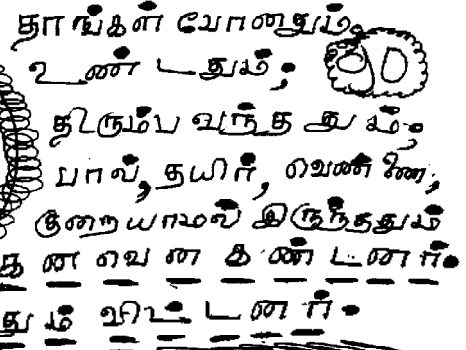 தாங்கள் போனதும்,
உண்டதும்;
திரும்ப வந்ததும்;
பால், தயிர், வெண்ணை,
குறையாமல் இருந்ததும்
கனவென கண்டனர்.
தும் விட்டனர்.